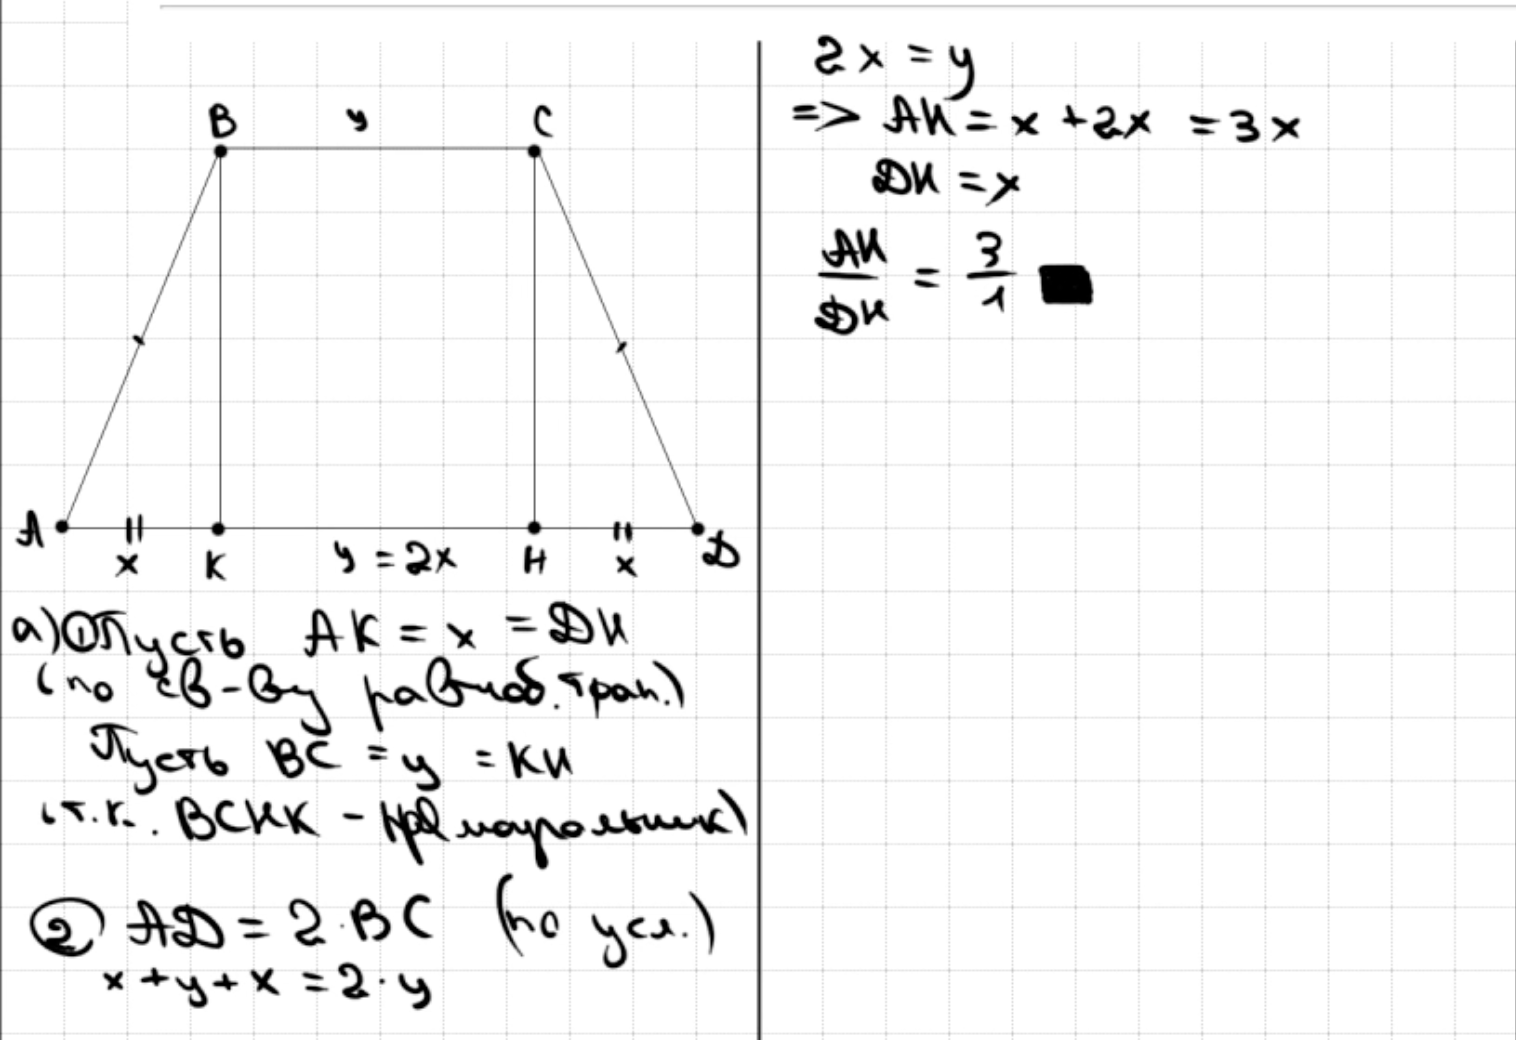 B y C
A x K y = 2x H x D
а) ① Пусть AK = x = DH
(по св-ву равноб. трап.)
Пусть BC = y = KH
(т.к. BCHK - прямоугольник)
② AD = 2·BC (по усл.)
x + y + x = 2·y
2x = y
=> AH = x + 2x = 3x
DH = x
AH/DH = 3/1